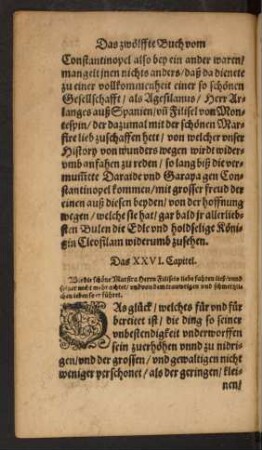 Das zwölffte Buch vom
Constantinopel also bey ein ander waren/
mangelt jnen nichts anders/ daß da dienete
zu einer vollkommenheit einer so schönen
Gesellschafft/ als Agesilanus/ Herr Ar-
langes auß Spanien/ vñ Filisel von Mon-
tespin/ der dazumal mit der schönen Mar-
fire lieb zuschaffen hett/ von welcher vnser
History von wunders wegen wirdt wider-
vmb anfahen zu reden/ so lang biß die ver-
mum̃ete Daraide vnd Garaya gen Con-
stantinopel kommen/ mit grosser freud der
einen auß diesen beyden/ von der hoffnung
wegen/ welche sie hat/ gar bald jr allerlieb-
sten Bulen die Edle vnd holdselige Köni-
gin Cleofilam widerumb zusehen.
Das XXVI. Capitel.
Wie die schöne Marfire Herrn Filiseln liebe fahren ließ/ vnnd
nicht mehr achtet/ vnd von dem traurwrigen vnd schmertz-
lichen leben so er führet.
DAs glück/ welchts für vnd für
bereitet ist/ die ding so seiner
vnbestendigkeit vnderworffen
sein zuerhöhen vnnd zu nidri-
gen/ vnd der grossen/ vnd gewaltigen nicht
weniger verschonet/ als der geringen/ klei-
nen/